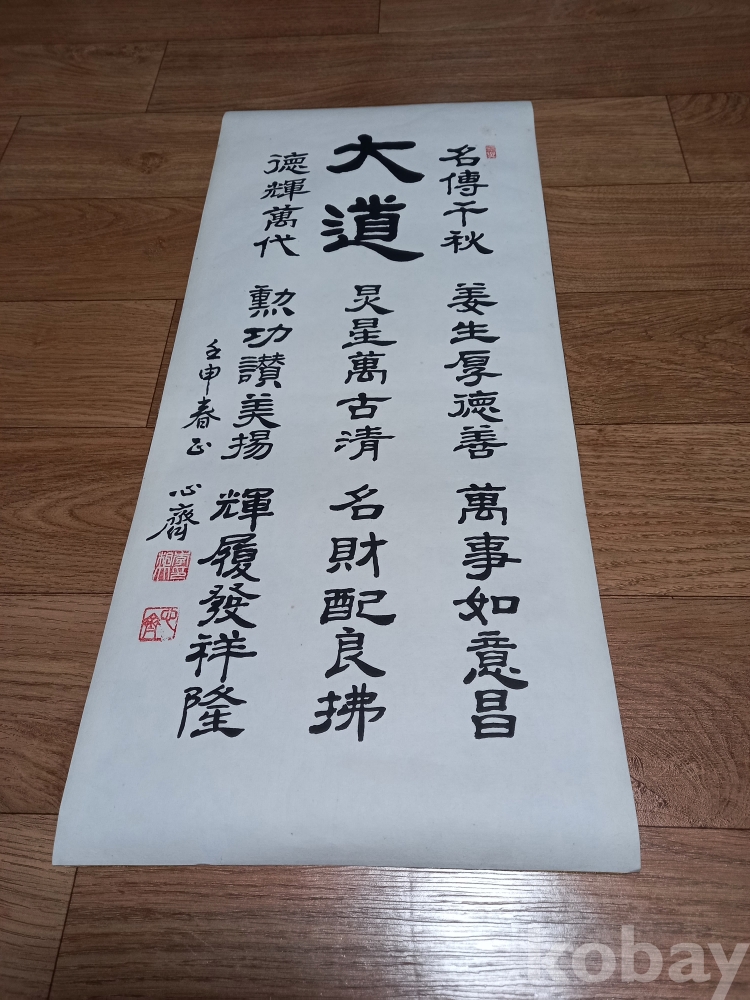 名傳千秋
姜生厚德善
萬事如意昌
大道
炅星萬古清
名財配良拂
德輝萬代
勲功讃美揚
輝履發祥隆
壬申春正
心齊
kobay